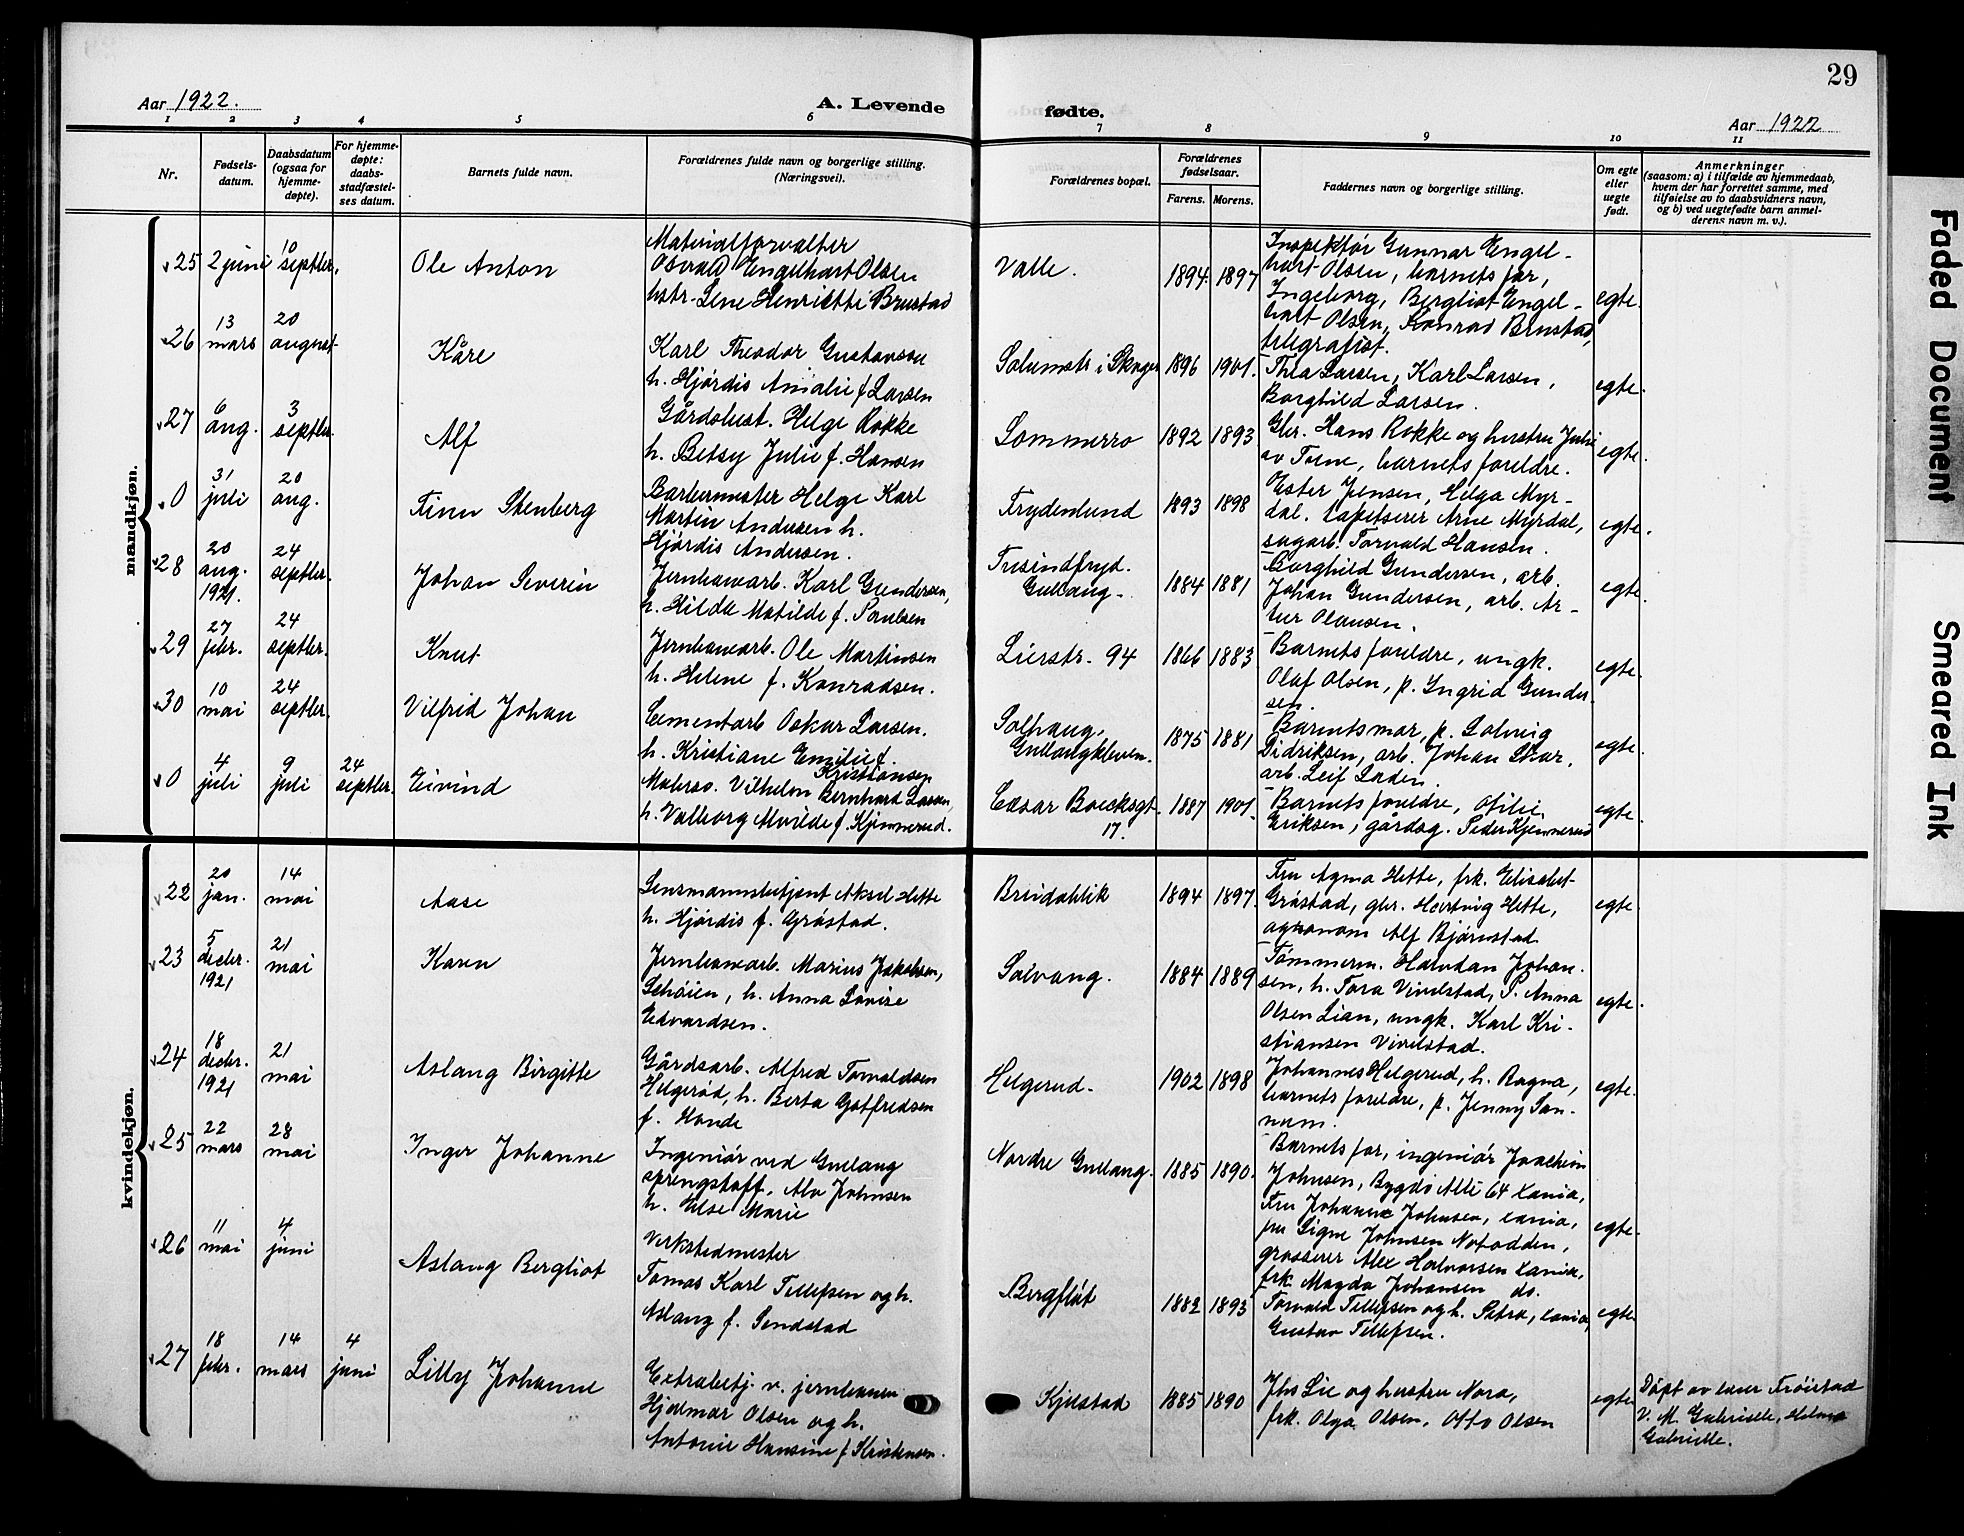 29
Aar 1922.
A. Levende
fødte.
Aar 1922
1 2 3 4 5 6 7 8 9 10 11
Nr.
Fødsels-
datum.
Daabsdatum
(ogsaa for
hjemme-
døpte).
For hjemme-
døpte:
daabs-
stadfæstel-
ses datum.
Barnets fulde navn.
Forældrenes fulde navn og borgerlige stilling.
(Næringsvei).
Forældrenes bopæl.
Forældrenes
fødselsaar.
Farens. Morens.
Faddernes navn og borgerlige stilling.
Om egte
eller
uegte
født.
Anmerkninger
(saasom: a) i tilfælde av hjemmedaab,
hvem der har forrettet samme, med
tilføielse av to daabsvidners navn,
og b) ved uegtefødte barn anmel-
derens navn m. v.).
mandkjøn.
25
2 juni
10
septbr.
Ole Anton
Materialforvalter
Osvald Engelhart Olsen
hstr. Lene Henriette Brustad
Valle.
1894. 1897
Inspektör Gunnar Engel-
hart Olsen, barnets far,
Ingeborg, Bergliot Engel-
hart Olsen, Konrad Brustad,
telegrafist.
egte.
26
13
mars
20
august
Kåre
Karl Theodor Gustavson
h. Hjördis Amalie f. Larsen
Solumstr. i Skoger
1896 1901.
Thea Larsen, Karl Larsen,
Borghild Larsen.
egte.
27
6
aug.
3
septbr.
Alf
Gårdsbest. Helge Rokke
h. Betsy Julie f. Hansen
Sommerro
1892 1893
Gbr. Hans Rokke og hustru Julie
av Torne, barnets foreldre.
egte.
0
31
juli
20
aug.
Finn Stenberg
Barbermester Helge Karl
Martin Andersen h.
Hjördis Andersen.
Frydenlund
1893 1898
Ester Jensen, Helga Myr-
dal. tapetserer Arne Myrdal,
sagarb. Torvald Hansen.
egte.
28
20
aug.
1921.
24
septbr.
Johan Severin
Jernbanearb. Karl Gundersen,
h. Hilda Matilde f. Paulsen
Tusindfryd.
Gullaug.
1884 1881
Borghild Gundersen, arb.
Johan Gundersen, arb. Ar-
tur Olausen.
egte.
29
27
febr.
24
septbr.
Knut
Jernbanearb. Ole Martinsen
h. Helene f. Konradsen.
Lierstr. 94
1866 1883
Barnets foreldre, ungk.
Olaf Olsen, p. Ingrid Gunder-
sen.
egte.
30
10
mai
24
septbr.
Vilfrid Johan
Cementarb Oskar Larsen.
h. Kristiane Emilie f.
Kristiansen
Solhaug,
Gullaugkleven.
1875 1881
Barnets mor, p. Solveig
Didriksen, arb. Johan Skar,
arb. Leif Laden
egte.
0
4
juli
9
juli
24
septbr.
Eivind
Malersv. Vilhelm Bernhard Larsen,
h. Valborg Alvilde f. Kjemmerud.
Cæsar Boecksgt.
17.
1887 1901.
Barnets foreldre, Otilie
Eriksen, gårdsg. Peder Kjemmerud
egte.
kvindekjøn.
22
20
jan.
14
mai
Aase
Lensmannsbetjent Aksel Hette
h. Hjördis f. Gråstad.
Brudablik
1894 1897.
Fru Agma Hette, frk. Elisabet
Gråstad, gbr. Hartvig Hette,
agronom Alf Björnstad
egte.
23
5
decbr.
1921
21
mai
Karen
Jernbanearb. Marius Jakobsen,
Schöien, h. Anna Lovise
Edvardsen.
Solvang.
1884 1889
Tömmerm. Halvdan Johan-
sen, h. Tora Vivelstad, P. Anna
Olsen Lian, ungk. Karl Kri-
stiansen Vivelstad.
egte.
24
18
decbr.
1921
21
mai
Aslaug Birgitte
Gårdsarb. Alfred Torvaldsen
Helgerød, h. Berta Gotfredsen
f. Honde
Helgerud.
1902 1898
Johannes Helgerud, h. Ragna,
barnets foreldre, p. Jenny San-
num.
egte.
25
22
mars
28
mai
Inger Johanne
Ingeniör ved Gullaug
sprengstoff. Alv Johnsen
h. Else Marie
Nordre Gullaug.
1885 1890.
Barnets far, ingeniör Joachim
Johnsen, Bygdö Alle 64 Xania,
Fru Johanne Johnsen, Xania,
fru Signe Johnsen Notodden,
grosserer Alex Halvorsen Xania,
frk. Magda Johansen do.
egte.
26
11
mai
4
juni
Aslaug Bergliot
Verkstedmester
Tomas Karl Tellefsen og h.
Aslaug f. Sendstad
Bergfløt
1882 1893
Torvald Tellefsen og h. Petra, Xania,
Gustav Tellefsen.
egte.
27
18
febr.
14
mars
4
juni
Lilly Johanne
Extrabetj. v. jernbanen
Hjalmar Olsen og h.
Antonie Hansine f. Kristensen.
Kjustad
1885 1890
Jhs Lie og hustru Nora,
frk. Olga Olsen. Otto Olsen
egte
Döpt av lærer Fröistad
V. M. Gabrielle, Helma
Gabrielle.
Faded Document
Smeared Ink